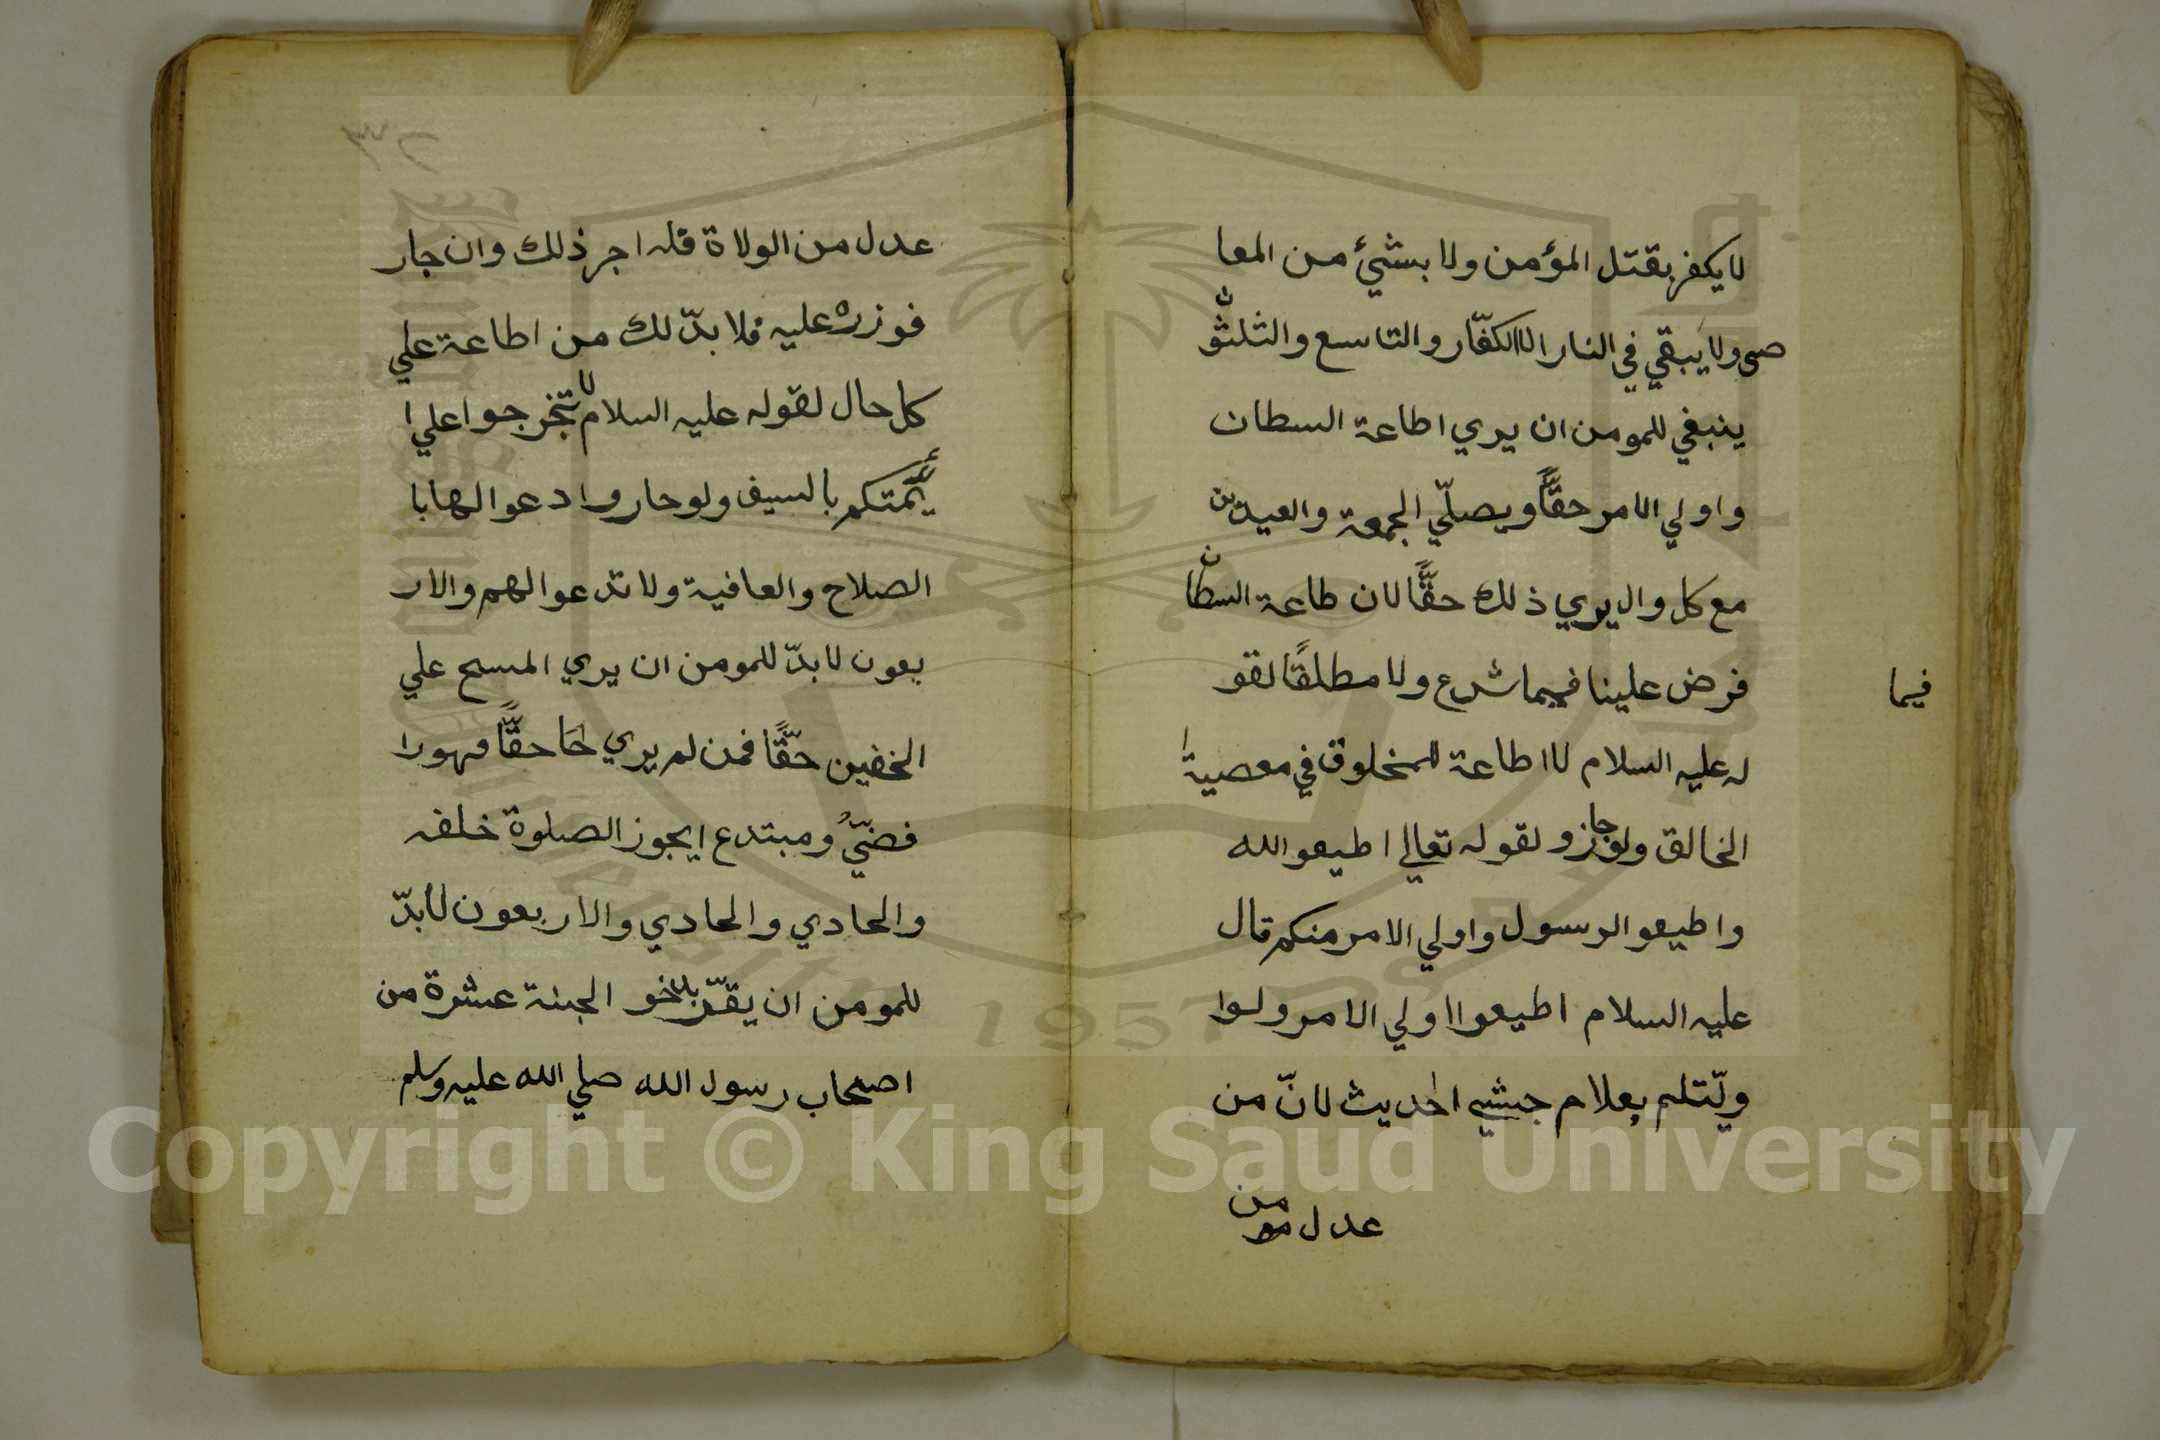 لا يكفر بقتل المؤمن ولا بشيئ من المعا
صي ولا يبقي في النار الا الكفّار والتاسع والثلثون
ينبغي للمومن ان يري اطاعة السطان
واولي الامر حقًّا ويصلّي الجمعة والعيدين
مع كل وال يري ذلك حقًّا لان طاعة السطان
فرض علينا فيما شرع ولا مطلقًا لقو
فيما
له عليه السلام لا اطاعة للمخلوق في معصية
الخالق ولو جازو لقوله تعالي اطيعو الله
واطيعو الرسول واولي الامر منكم قال
عليه السلام اطيعوا اولي الامر ولوا
وليّتلم بعلام حبشي الحديث لانّ من
عدل من
عدل من الولاة فله اجر ذلك وان جار
فوزره عليه فلا بدّ لك من اطاعة علي
كل حال لقوله عليه السلام لا تخرجوا علي ا
ئمّتكم بالسيف ولو حاروا وادعوا لها با
الصلاح والعافية ولا تدعوا لهم والار
بعون لا بدّ للمومن ان يري المسح علي
الخفين حقًّا فمن لم يري حقًّا فهو را
فضيّ ومبتدع ايجوز الصلوة خلفه
والحادي والحادي والاربعون لا بدّ
للمومن ان يقرّ الجنة عشرة من
اصحاب رسول الله صلي الله عليه وسلم
Copyright © King Saud University
1957